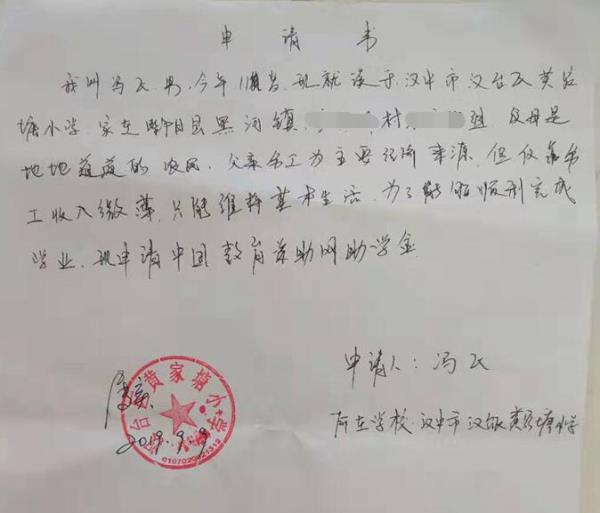 申请书
我叫冯飞 男，今年11岁，现就读于汉中市汉台区黄家
塘小学 家在略阳县黑河镇 村 组 父母是
地地道道的农民，父亲务工为主要经济来源，但仅靠务
工收入微薄，只能维持基本生活，为了能够顺利完成
学业，现申请中国教育资助网助学金
申请人：冯飞
所在学校：汉中市汉台区黄家塘小学
台 黄家塘小学
2019.9.9